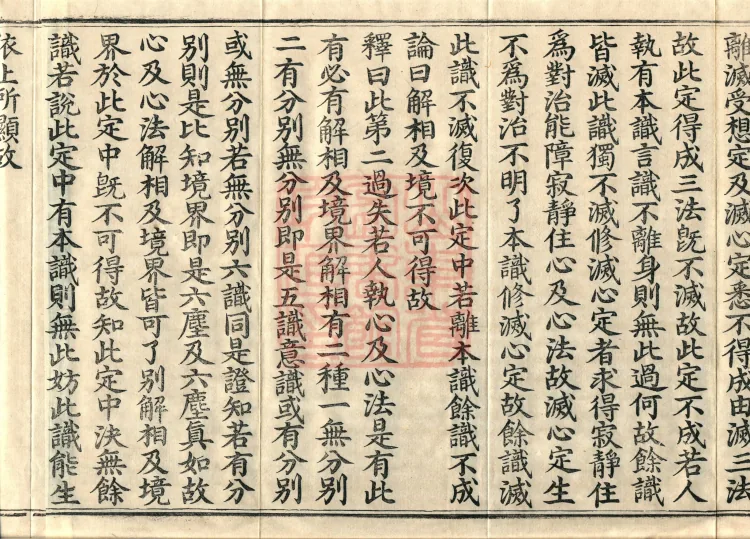 離滅受想定及滅心定悉不得成由滅三法
故此定得成三法旣不滅故此定不成若人
執有本識言識不離身則無此過何故餘識
皆滅此識獨不滅修滅心定者求得寂靜住
爲對治能障寂靜住心及心法故滅心定生
不爲對治不明了本識修滅心定故餘識滅
此識不滅復次此定中若離本識餘識不成
論曰解相及境不可得故
釋曰此第二過失若人執心及心法是有此
有必有解相及境界解相有二種一無分別
二有分別無分別即是五識意識或有分別
或無分別若無分別六識同是證知若有分
別則是比知境界即是六塵及六塵眞如故
心及心法解相及境界皆可了別解相及境
界於此定中旣不可得故知此定中決無餘
識若說此定中有本識則無此妨此識能生
依止所顯故